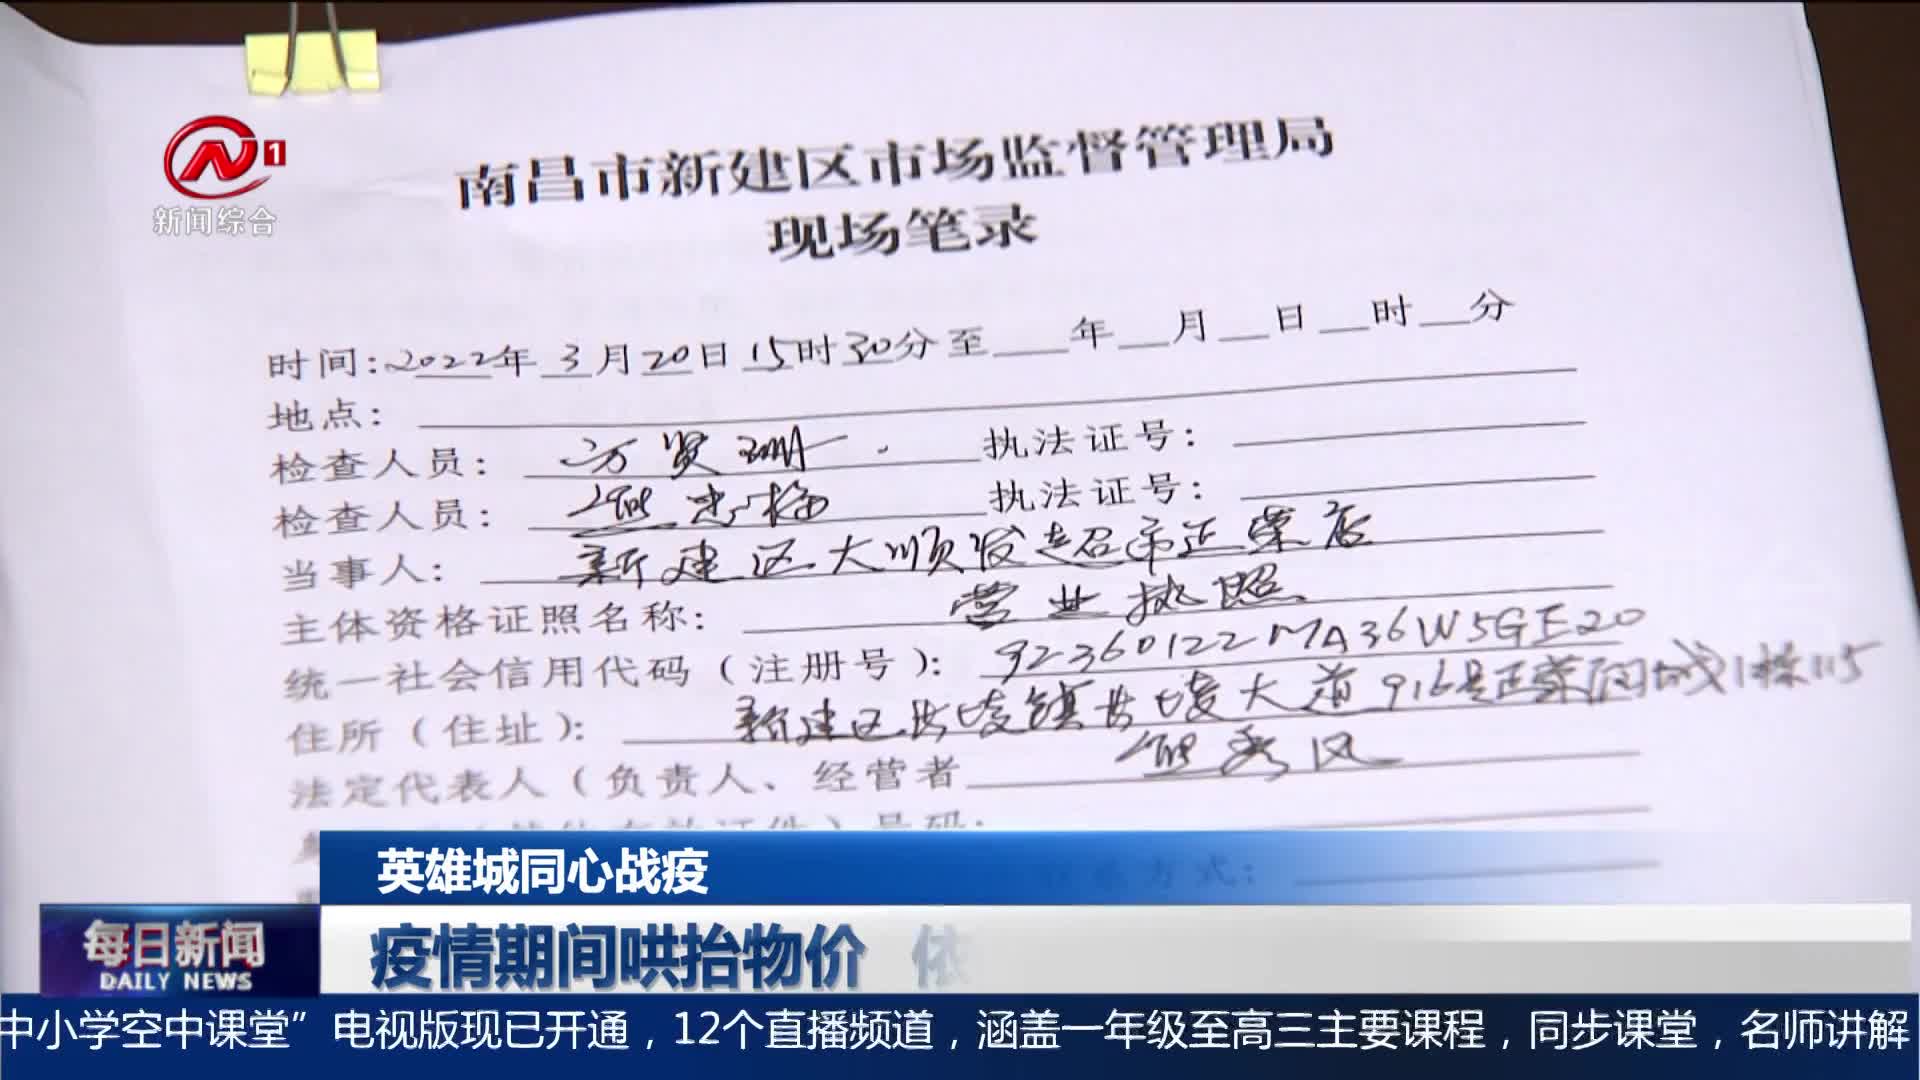 1
新闻综合
南昌市新建区市场监督管理局
现场笔录
时间:2022年 3 月 20日 15时 30分 至 年 月 日 时 分
地点:
检查人员: 执法证号:
检查人员: 执法证号:
当事人: 新建区大顺发超市正荣店
主体资格证照名称: 营业执照
统一社会信用代码(注册号): 92360122MA36W5GE20
住所(住址): 新建区长堎镇长堎大道916号正荣
法定代表人(负责人、经营者
英雄城同心战疫
每日新闻
DAILY NEWS
疫情期间哄抬物价 依
中小学空中课堂”电视版现已开通，12个直播频道，涵盖一年级至高三主要课程，同步课堂，名师讲解